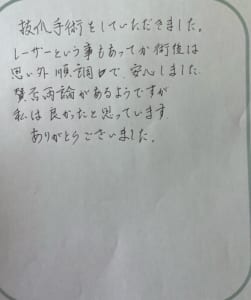 抜爪手術をしていただきました。
レーザーという事もあってか術後は
思い外 順調で、安心しました
賛否両論があるようですが
私は良かったと思っています
ありがとうございました。